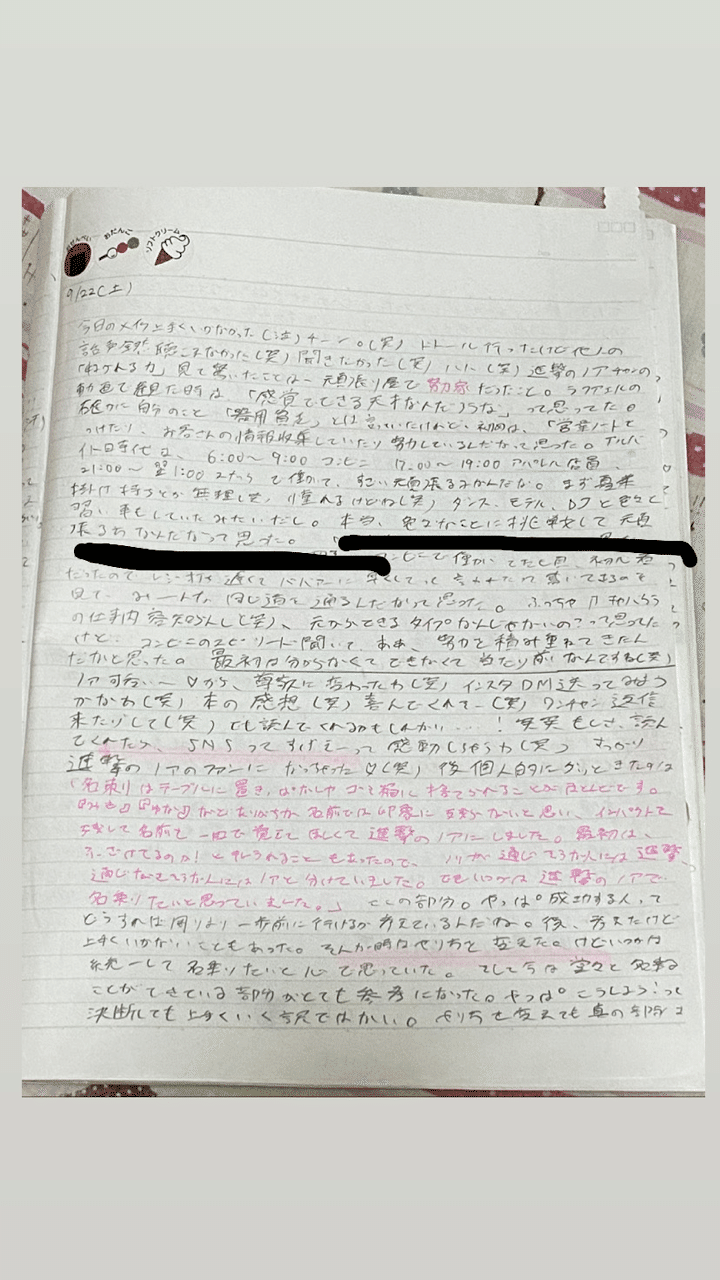 おせんべい
おだんご
ソフトクリーム
9/22(土)
今日のメイク上手くいかなかった(泣)チーン。(笑) ドトール行ったけど他人の
話全然聴こえなかった(笑) 聞きたかった(笑) 進撃のノアチャンの
見て驚いたことは、頑張り屋で努力家だったこと。ラファエルの
動画で観た時は、「感覚でできる天才なんだろうな」って思ってた。
確かに自分のこと「器用貧乏」とは言っていたけれど、初めは、「営業ノートを
つけたり、お客さんの情報収集していたり努力しているんだなって思った。アルバ
イト時代は、6:00〜9:00 コンビニ 12:00〜19:00 アパレル店員、
21:00〜翌1:00 で働いて、すごい頑張るみたいだな。まず真業
掛け持ちとか無理しそ、憧れるけどね(笑) ダンス、モデル、DJと色々と
習い事もしていたみたいだし。本当、色々なことに挑戦して頑
張る力なんだなって思った。
コンビニで働いてた
だったので、レジ打ち遅くてババアに早くしてって言われたって書いてあるのを
見て、みーんな同じ道を通るんだなって思った。
の仕事内容知らんし(笑)、元からできるタイプなんじゃないの?って思ってた
けど、コンビニのエピソード聞いて、ああ、努力を積み重ねてきたん
だなと思った。最初は分からなくてできなくて当たり前なんですね(笑)
ノア可愛い〜♡から、尊敬に変わったわ(笑) インスタDM送ってみよう
かなあ(笑) 本の感想(笑) 喜んでくれそー(笑) ワンチャン返信
来たりして(笑) でも読んでくれるかもしれない…! もしさ、読ん
でくれたら、SNSってすげえーって感動しちゃうわ(笑) すっかり
進撃のノアのファンになっちゃった♡(笑) 後個人的にグッときたのは
「名刺はテーブルに置きっぱなしやゴミ箱に捨てられることがほとんどです。
『みき』『ゆか』などありがちな名前では印象に残らないと思い、インパクトを
残して名前を一回で覚えてほしくて進撃のノアにしました。最初は、
ふざけてるのか!と怒られることもあったので、ノリが通じてる方には進撃、
通じなさそうな人にはノアと分けていました。でもいつかは進撃のノアで
名乗りたいと思っていました。」 ここの部分。やっぱ成功する人って
どうすれば周りより一歩前に行けるか考えているんだね。後、考えたけど
上手くいかないこともあった。そんな時はやり方を変えた。けどいつかは
統一して名乗りたいと心で思っていた。そして今は堂々と名乗る
ことができている部分がとても参考になった。やっぱこうしよう!って
決断しても上手くいく訳ではない。やり方を変えても真の部分は